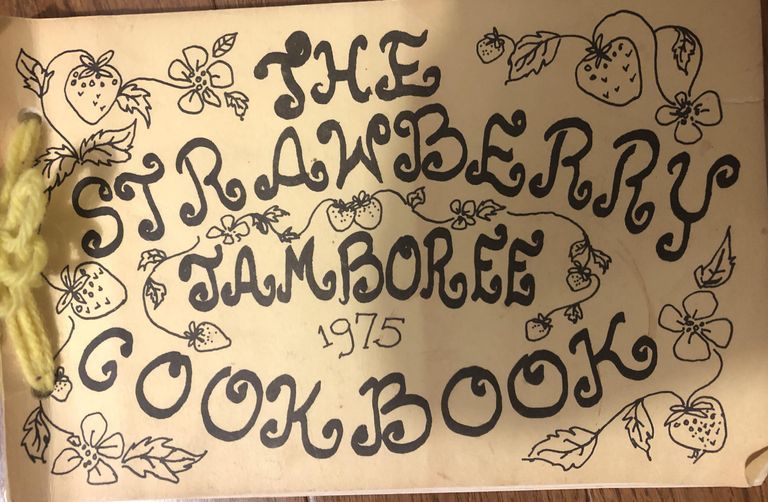 THE
STRAWBERRY
JAMBOREE
1975
COOKBOOK